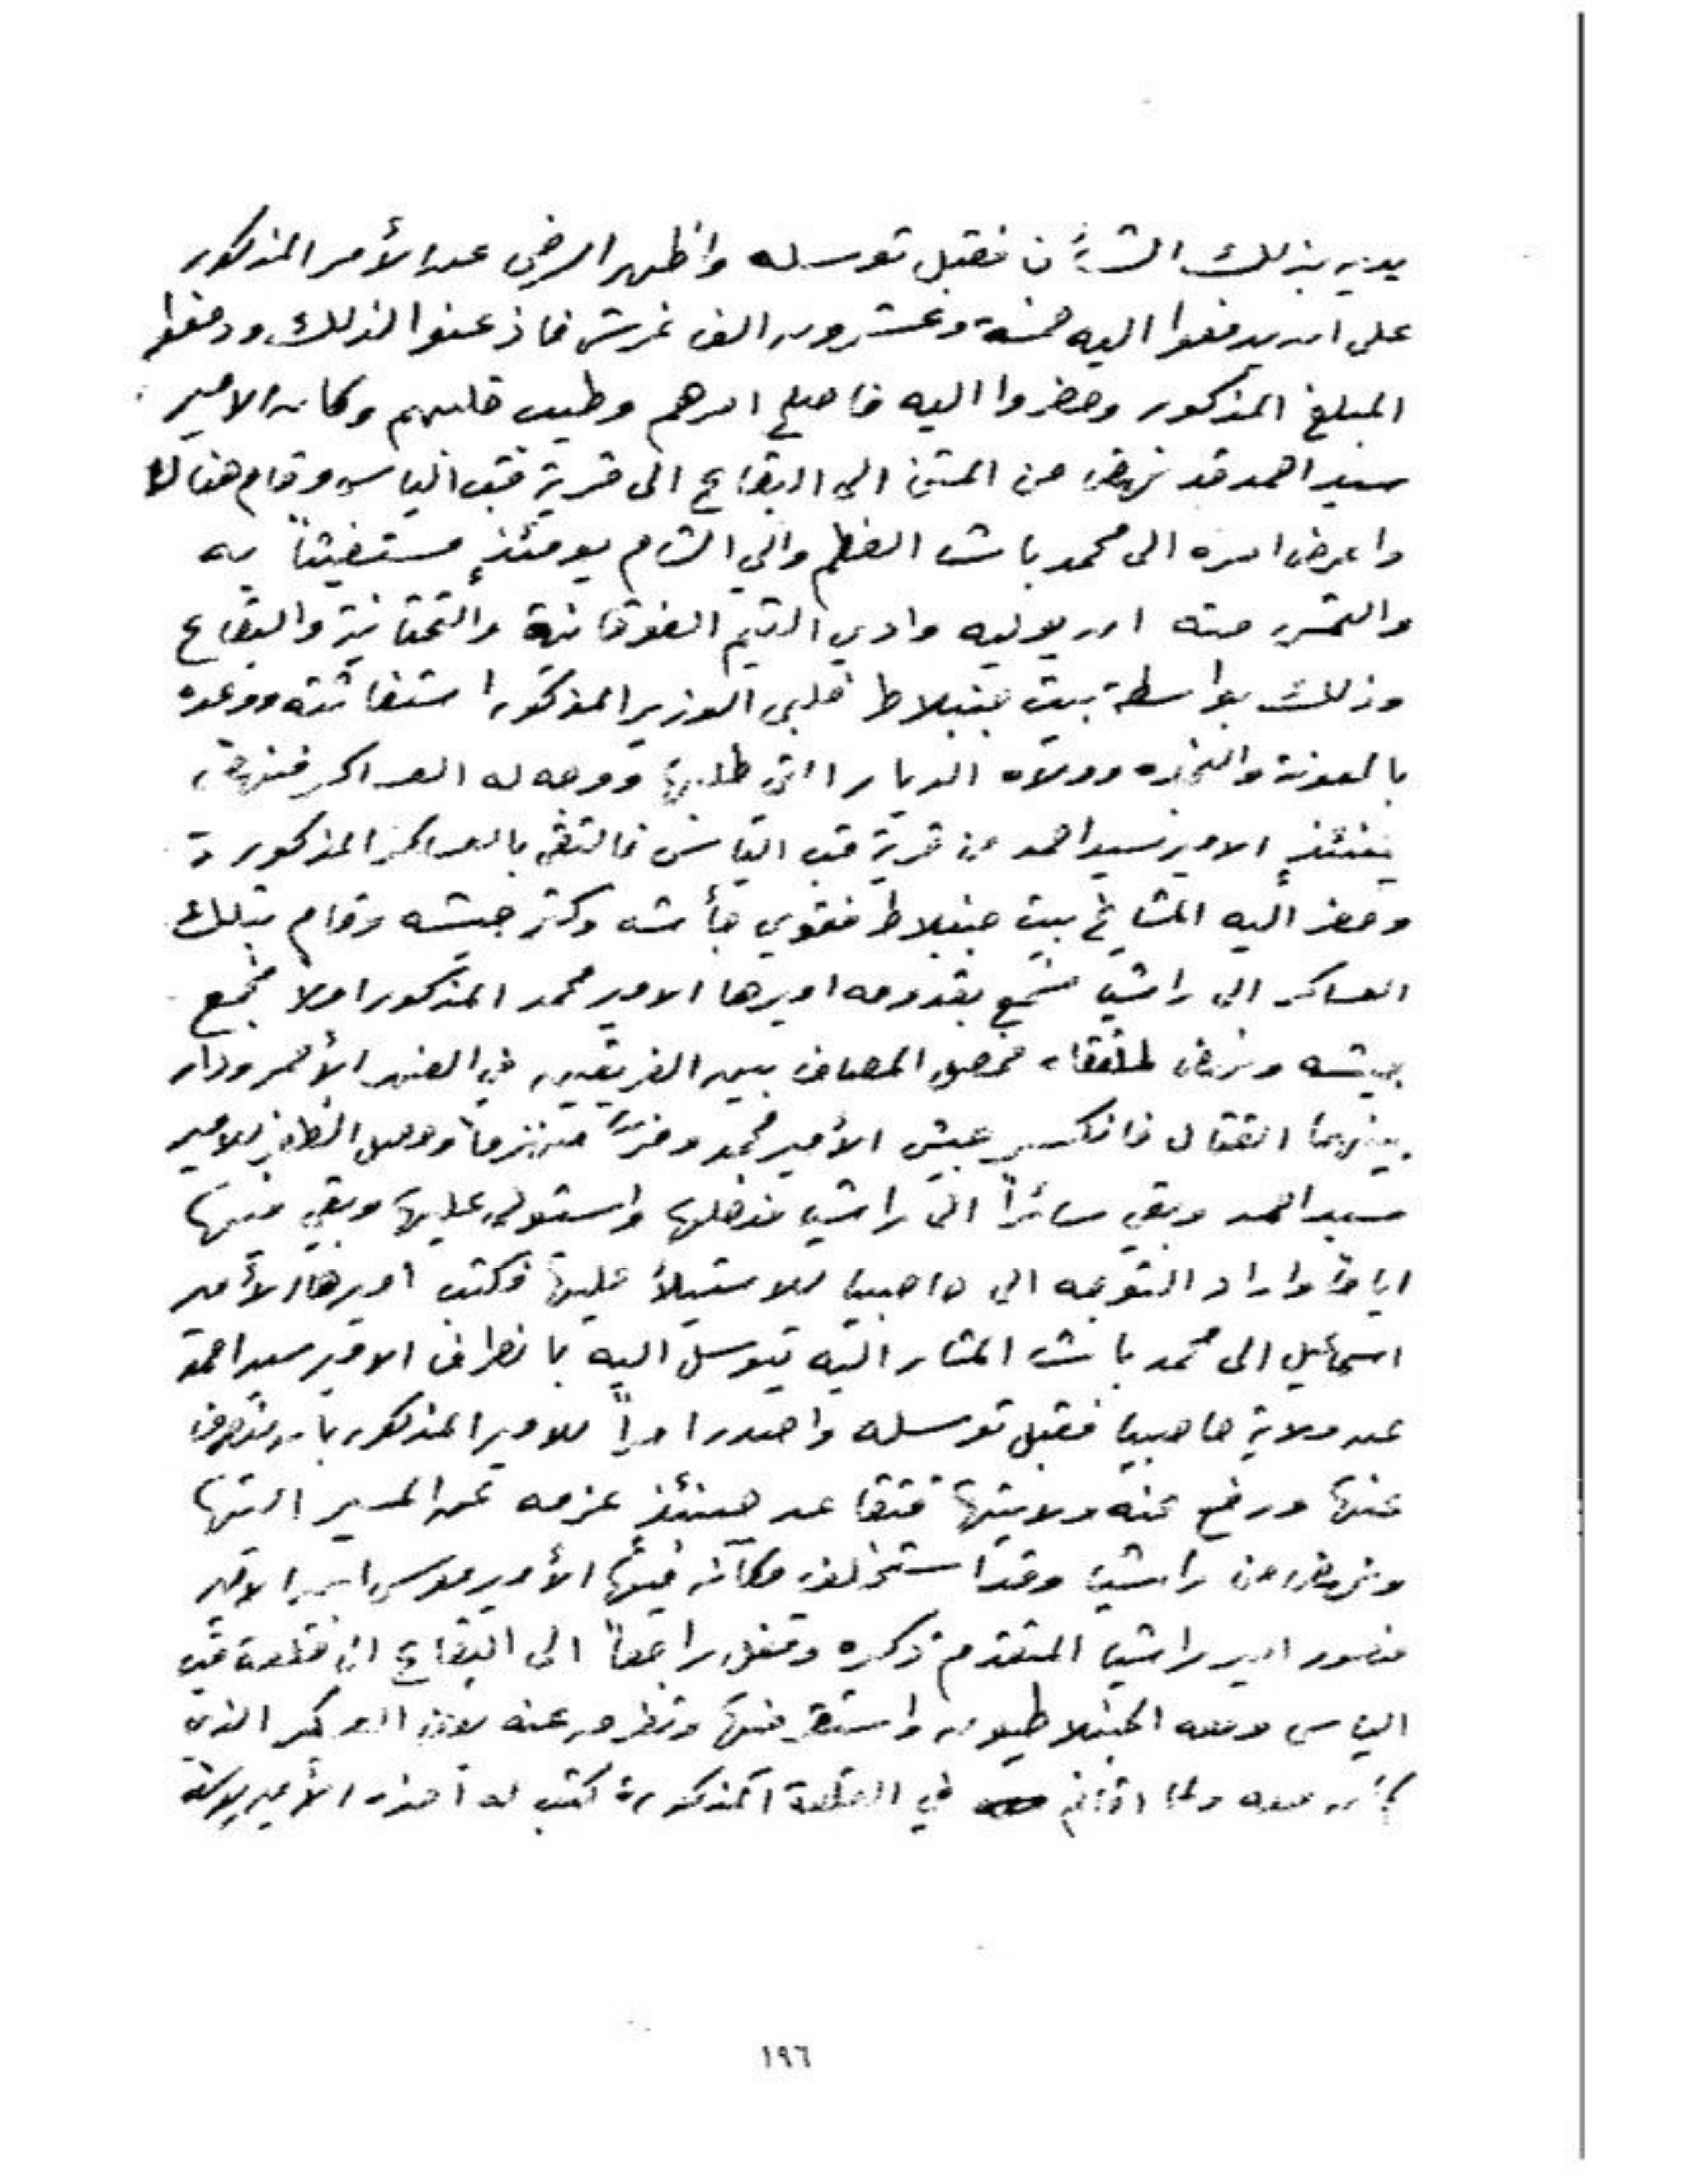 يديه بذلك الشأن فقبل توسله واظهر الرضى عن الأمر المذكور
على ان يدفعوا اليه خمسة وعشرون الف غرش فاذعنوا لذلك ودفعوا
المبلغ المذكور وحضروا اليه فاصلح امرهم وطيب قلبهم وكان الامير
سيد احمد قد نهض من المتن الى البقاع الى قرية قب الياس وقام هناك
واعرض امره الى محمد باشا العظم والي الشام يومئذٍ مستغيثاً به
والتمس منه ان يوليه وادي التيم الفوقانية والتحتانية والبقاع
وذلك بواسطة بيت جنبلاط فلبى الوزير المذكور استغاثته ووعده
بالمعونة والنجده وولاه الديار التي طلبها ووجه له العساكر فنهض
حينئذٍ الامير سيد احمد من قرية قب الياس فالتقى بالعساكر المذكورة
وحضر اليه المشايخ بيت جنبلاط فقوي جأشه وكثر جيشه وقام بتلك
العساكر الى راشيا فسمع بقدومه اميرها الامير محمد المذكور اولاً فجمع
جيشه ونهض لملتقاه فحصل المصاف بين الفريقين في الضهر الأحمر ودار
بينهما القتال فانكسر جيش الأمير محمد وفرّ منهزماً وحصل الظفر للامير
سيد احمد وبقي سائراً الى راشيا فدخلها واستولى عليها وبقي فيها
اياماً واراد التوجه الى حاصبيا للاستيلاً عليها فكتب اميرها الأمير
اسماعيل الى محمد باشا المشار اليه يتوسل اليه بانطراف الامير سيد احمد
عن ولاية حاصبيا فقبل توسله واصدر امراً للامير المذكور بان ينصرف
عنها ورفع عنه ولايتها فتقاعد حينئذٍ عزمه عن المسير اليها
ونهض من راشيا وقد استخلف مكانه فيها الأمير موسى ابن الامير
منصور امير راشيا المتقدم ذكره وقفل راجعاً الى البقاع الى قلعة قب
الياس ومعه الجنبلاطيون واستقر فيها وتفرق عنه العسكر الذي
كان معه ولما اقام في القلعة المذكورة كتب له اخوه الأمير يوسف
١٩٦